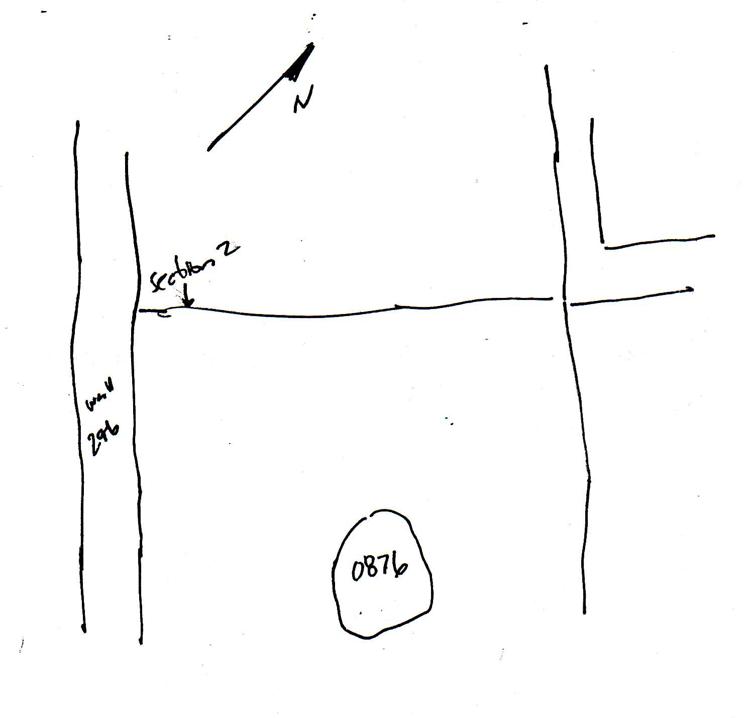 N
section 2
wall
296
0876